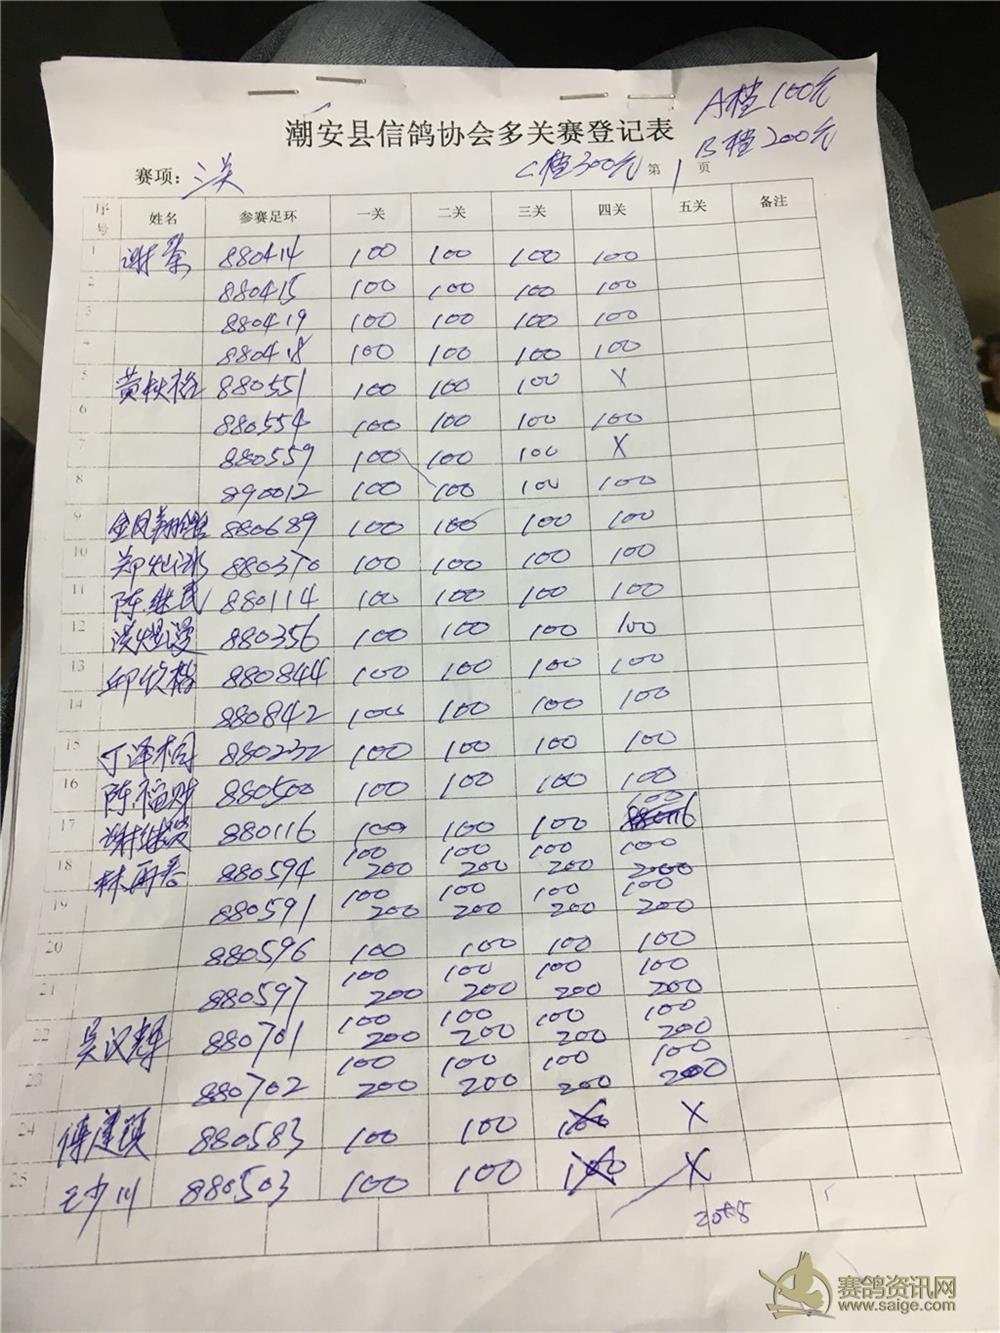 A档100元
潮安县信鸽协会多关赛登记表
B档200元
赛项：三关 C档300元 第1页
序号 姓名 参赛足环 一关 二关 三关 四关 五关 备注
1 880414 100 100 100 100
2 880415 100 100 100 100
3 880419 100 100 100 100
4 880418 100 100 100 100
5 880551 100 100 100 X
6 880554 100 100 100 100
7 880559 100 100 100 X
8 890012 100 100 100 100
9 880689 100 100 100 100
10 880370 100 100 100 100
11 陈继民 880114 100 100 100 100
12 880356 100 100 100 100
13 880844 100 100 100 100
14 880842 100 100 100 100
15 丁泽桐 880232 100 100 100 100
16 陈福财 880500 100 100 100 100
17 880116 100 100 100 100
18 林再春 880594 100 200 100 200 100 200 100 200
19 880591 100 200 100 200 100 200 100 200
20 880596 100 100 100 100
21 880597 100 200 100 200 100 200 100 200
22 吴汉辉 880701 100 200 100 200 100 200 100 200
23 880702 100 200 100 200 100 200 100 200
24 880583 100 100 100 X
25 王少川 880503 100 100 100 X
赛鸽资讯网
www.saige.com